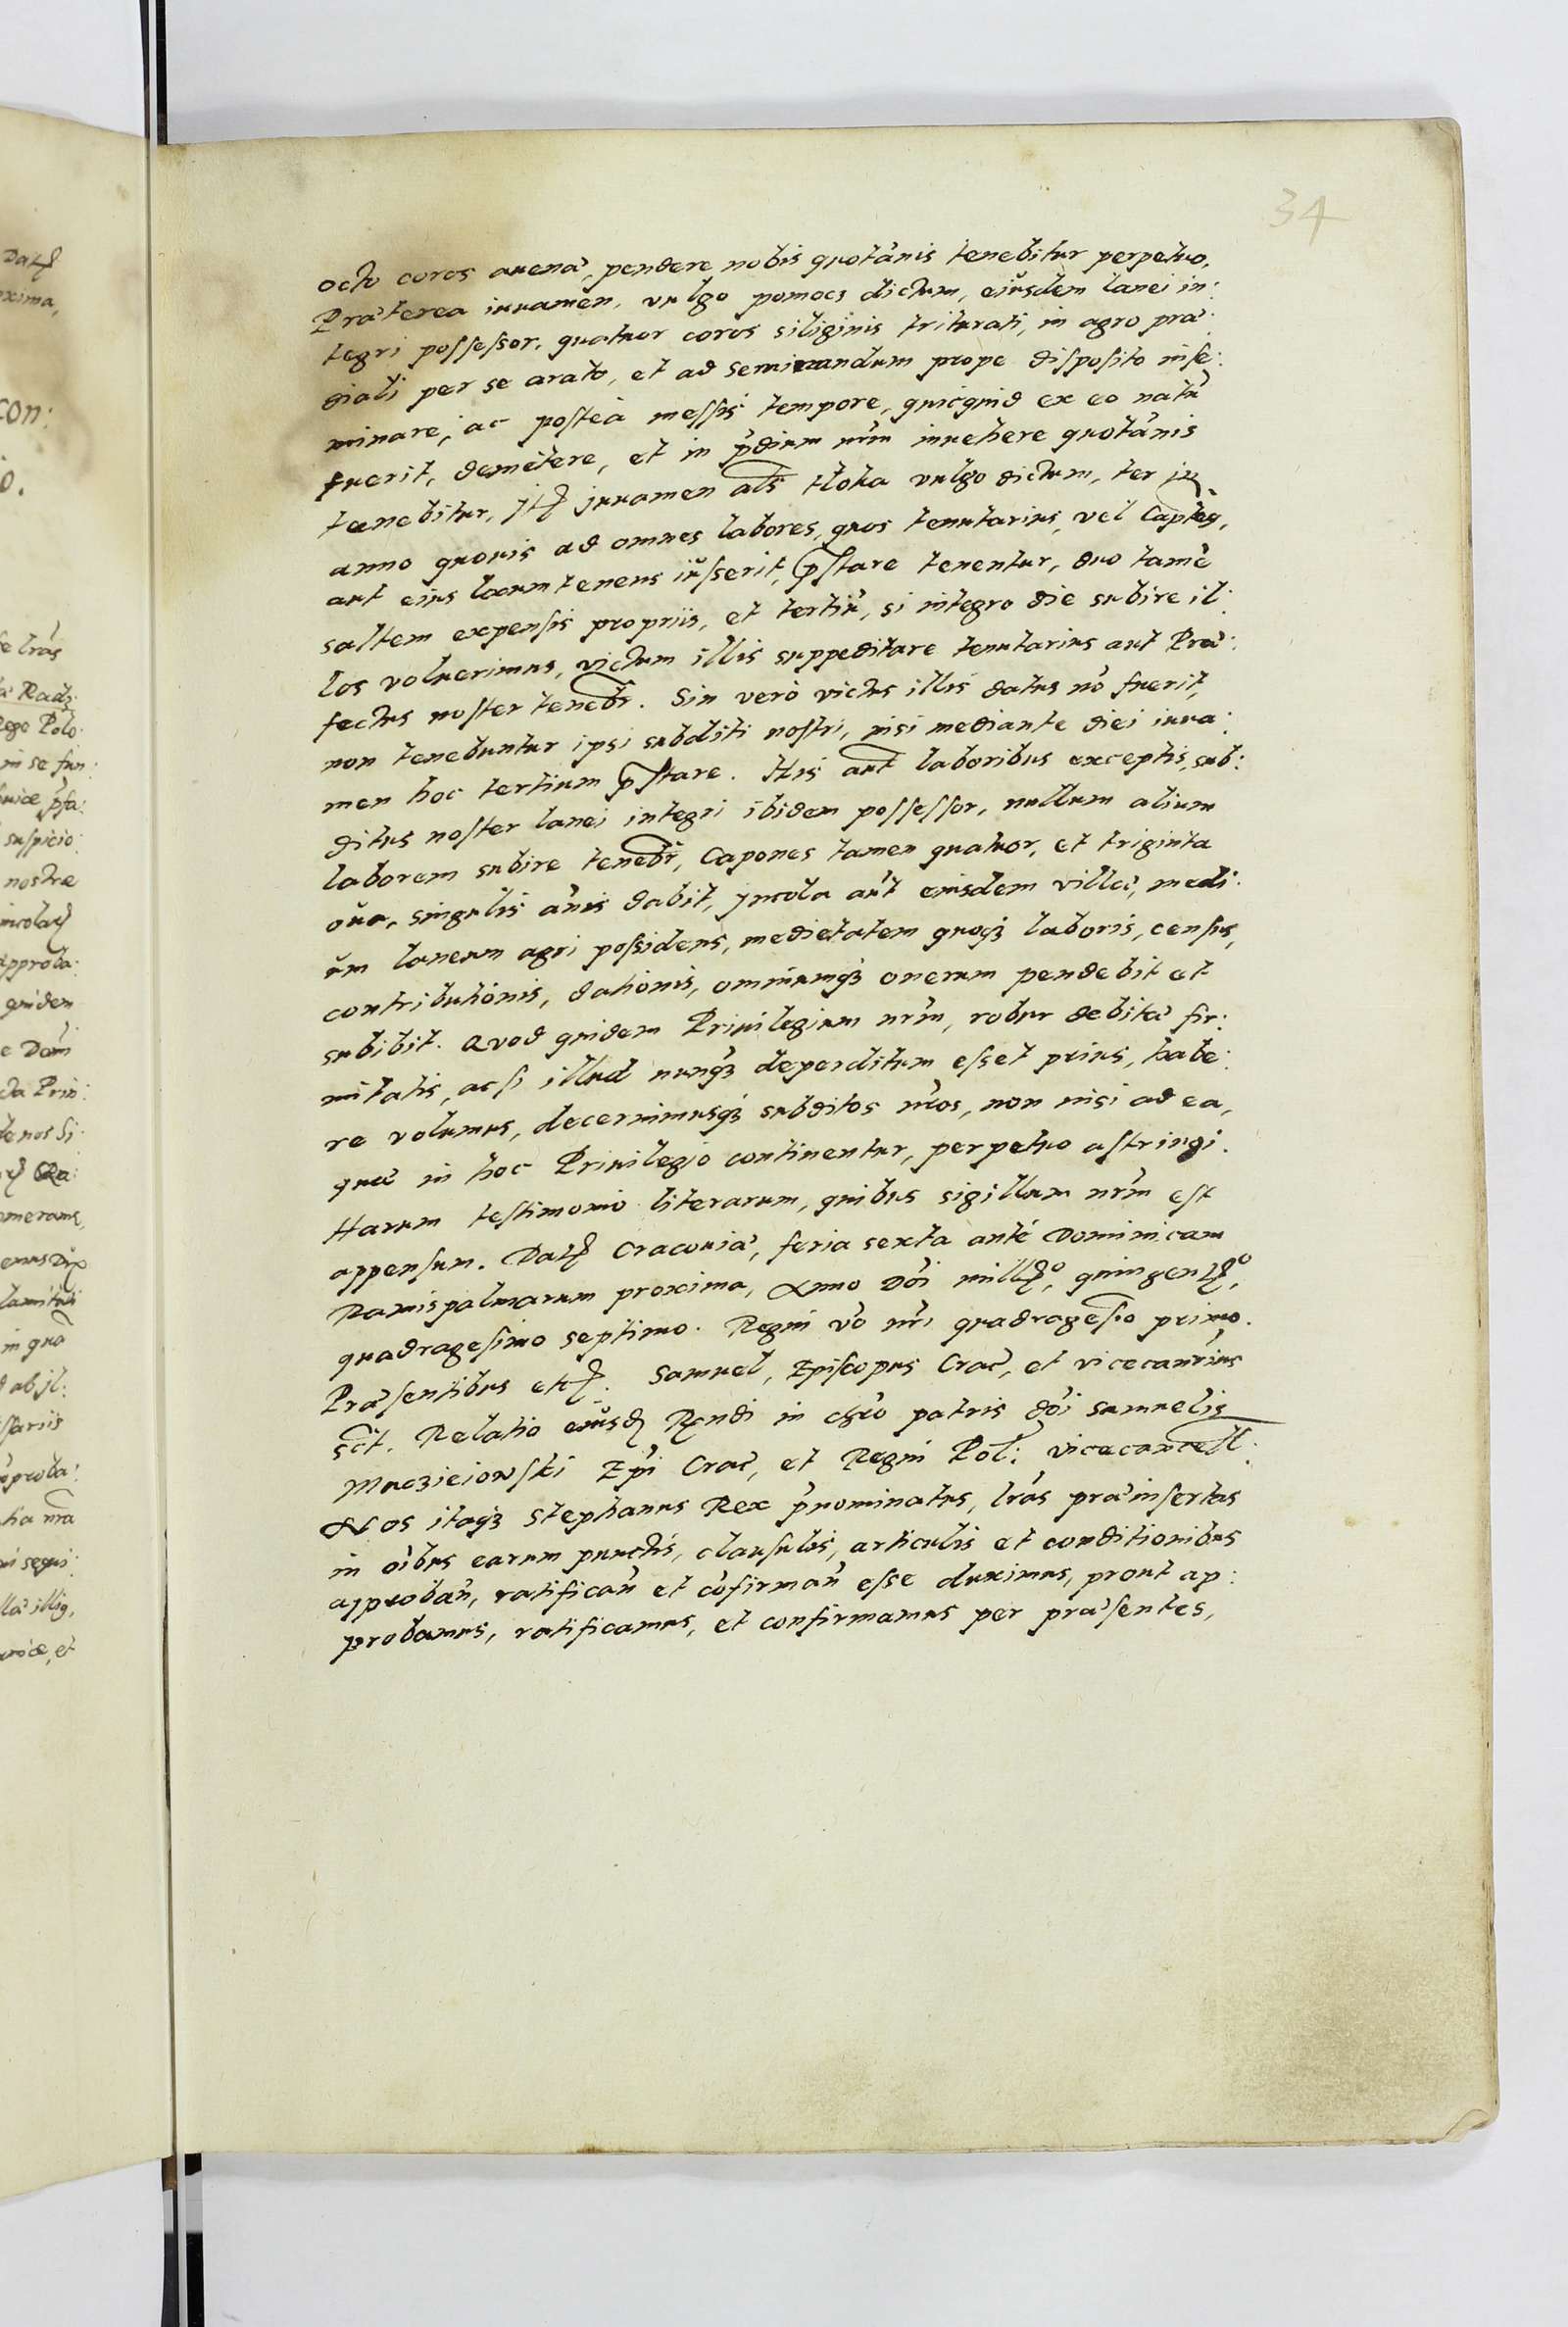 34
octo coros auenæ, pendere nobis quotānis tenebitur perpetuo.
Præterea iuuamen, vulgo pomocz dictum, eiusdem lanei in:
tegri possessor, quatuor coros siliginis triturati, in agro præ:
diali per se arato, et ad seminandum prope disposito inse:
minare, ac posteà messis tempore, quicquid ex eo natū
fuerit, demetere, et in p̄dium nr̄m inuehere quotānis
tænebitur, Itꝫ juuamen al̄s tloka vulgo dictum, ter in
anno quouis ad omnes labores, quos tenutarius, vel Capteꝰ,
aut eius locum tenens iusserit, p̄stare tenentur, duo tamē
saltem expensis propriis, et tertiū, si integro die subire il:
los voluerimus, victum illis suppeditare tenutarius aut Præ:
fectus noster teneb̄r. Sin verò victus illis datus nō fuerit,
non tenebuntur ipsi subditi nostri, nisi mediante diei iuua:
men hoc tertium p̄stare. His aūt laboribus exceptis, sub:
ditus noster lanei integri ibidem possessor, nullum alium
laborem subire teneb̄r, Capones tamen quatuor, et triginta
oua, singulis ānis dabit, jncola aūt eiusdem villæ, medi:
um laneum agri possidens, medietatem quoqꝫ laboris, census,
contributionis, dationis, omniumqꝫ onerum pendebit et
subibit. Quod quidem Priuilegium nr̄m, robur debitæ fir:
mitatis, ac si illud nunqꝫ deperditum esset prius, habe:
re volumus, decernimusqꝫ subditos nr̄os, non nisi ad ea,
quæ in hoc Priuilegio continentur, perpetuo astringi.
Harum testimonio literarum, quibus sigillum nr̄m est
appensum. Datꝫ Cracouiæ, feria sexta ante Dominicam
Ramispalmarum proxima, Anno Dn̄i millꝫº, quingentꝫº,
quadragesimo septimo. Regni v̄o nr̄i quadragesīo primo.
Præsentibus etcꝫ. Samuel, Episcopus Crac̄, et vicecan̄rius
sc̄t. Relatio eiusdꝫ Rn̄di in chr̄o patris dn̄i Samuelis
Maczieiowski Ep̄i Crac̄, et Regni Pol̄: vicecancell:
Nos itaqꝫ Stephanus Rex p̄nominatus, lr̄as præinsertas
in oībus earum punctis, clausulis, articulis et conditionibus
approban̄, ratifican̄ et cōfirman̄ esse duximus, prout ap:
probamus, ratificamus, et confirmamus per præsentes,